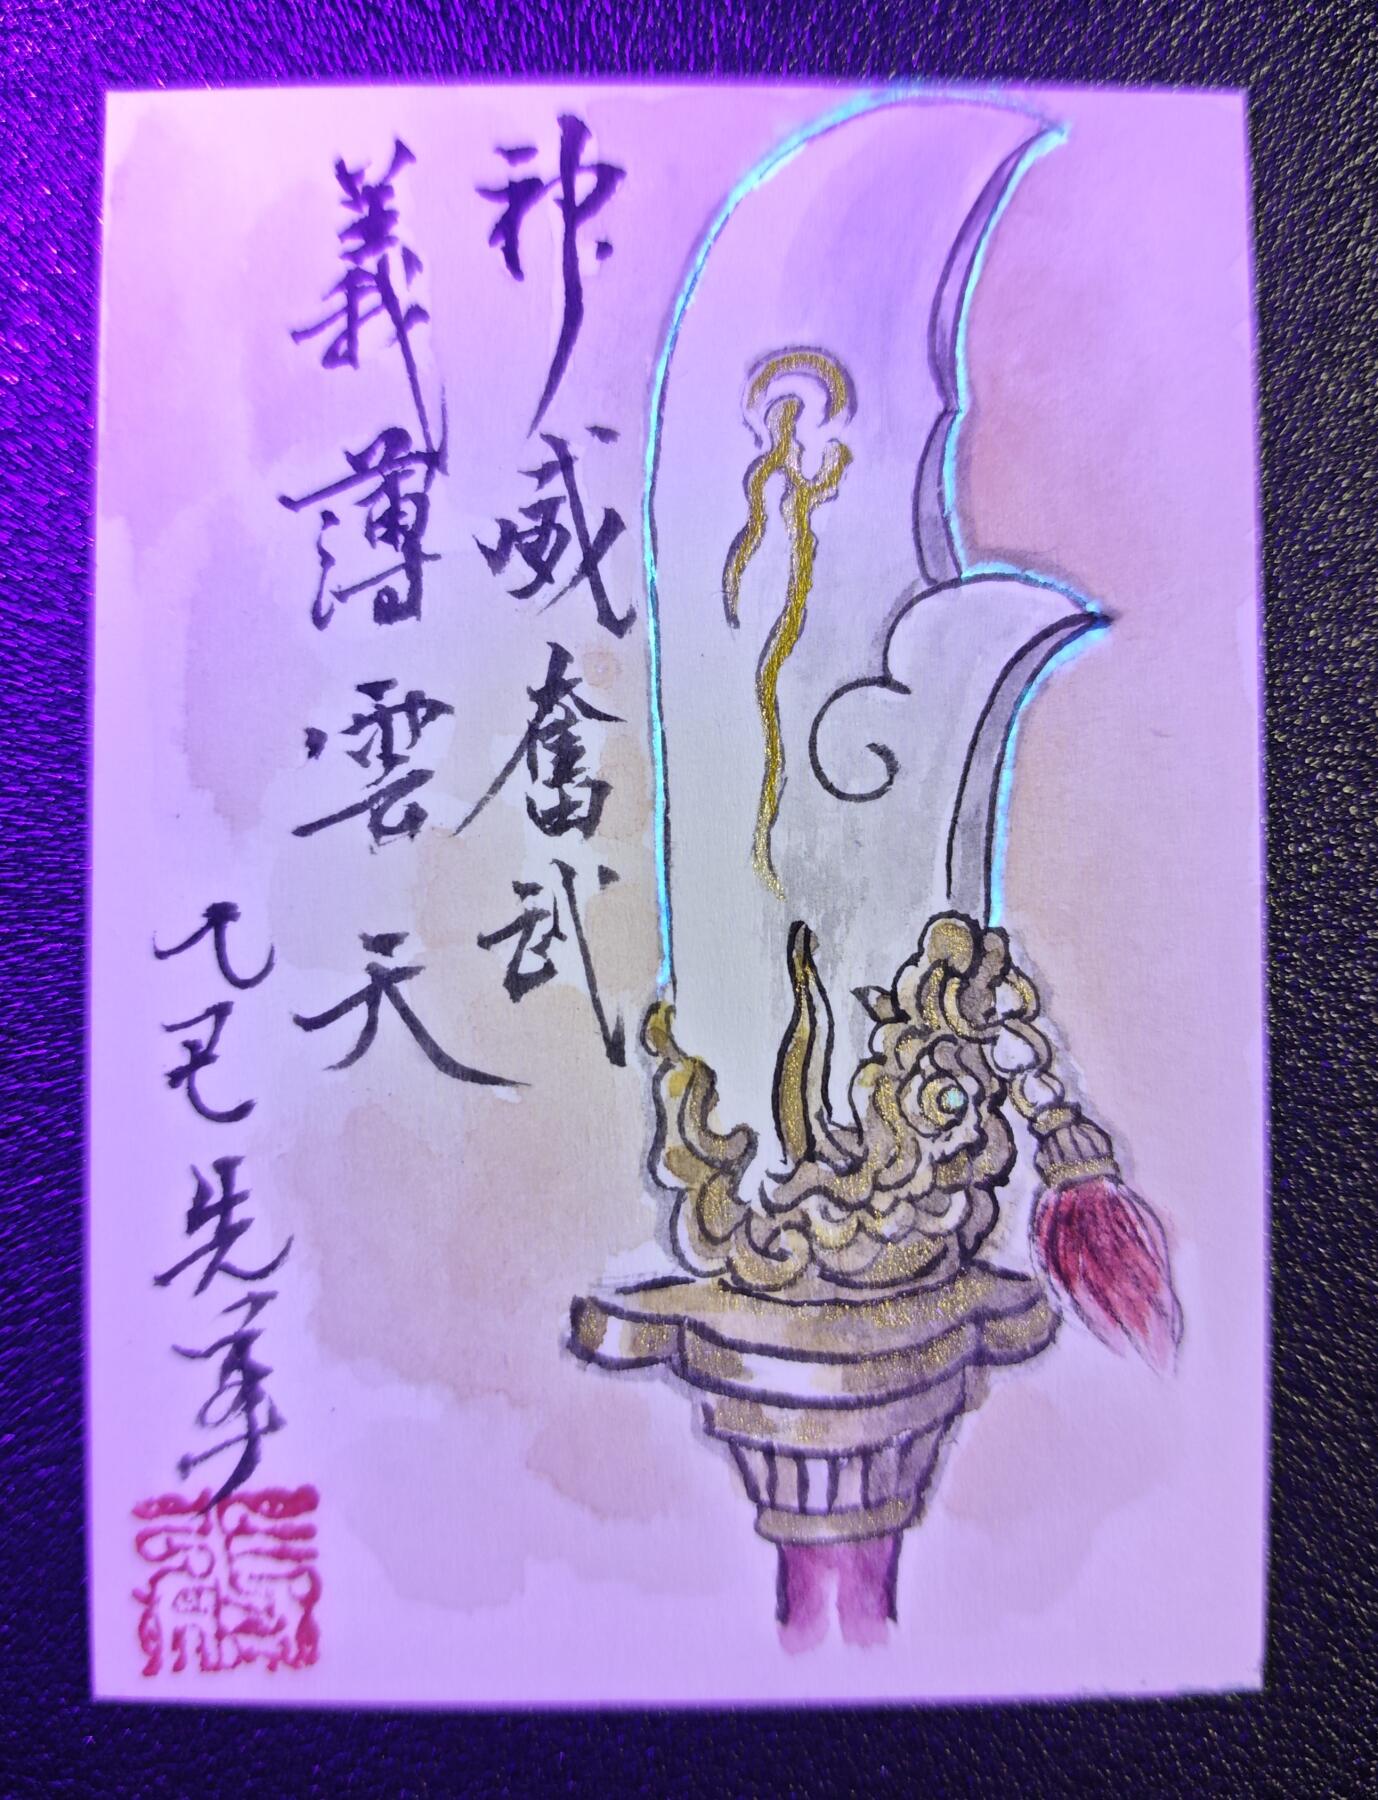 神威奮武
義薄雲天
乙巳先峯